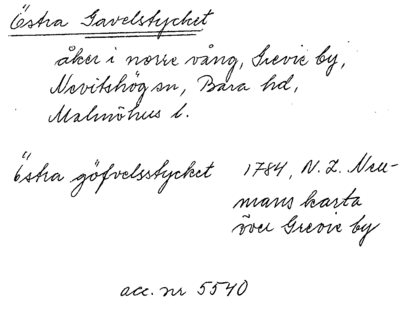 Östra Gavelstycket
åker i norre vång, Grevie by,
Nevitshög sn, Bara hd,
Malmöhus l.
Östra göfvelsstycket 1784, N. L. Neu-
mans karta
över Grevie by
acc. nr 5540